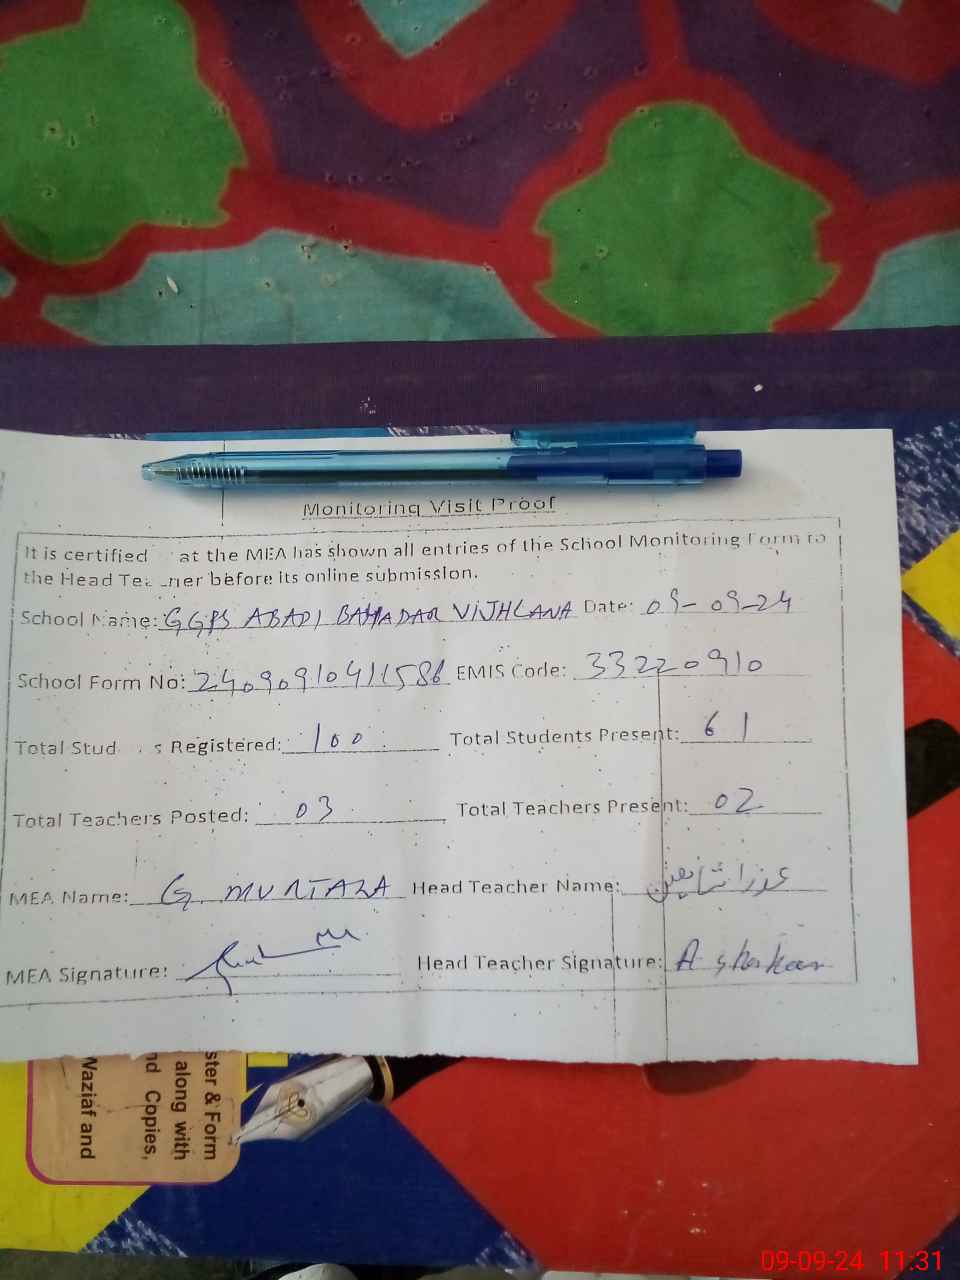 Monitoring Visit Proof
It is certified at the MEA has shown all entries of the School Monitoring Form to
the Head Teacher before its online submission.
School Name: GGPS ABADI BAHADAR VIJHLANA Date: 09-09-24
School Form No: 24090910411586 EMIS Code: 33220910
Total Stud s Registered: 100 Total Students Present: 61
Total Teachers Posted: 03 Total Teachers Present: 02
MEA Name: G. MURTAZA Head Teacher Name: عذرا شاہین
MEA Signature: Head Teacher Signature: A shaheen
ster & Form
along with
nd Copies,
Waziaf and
09-09-24 11:31